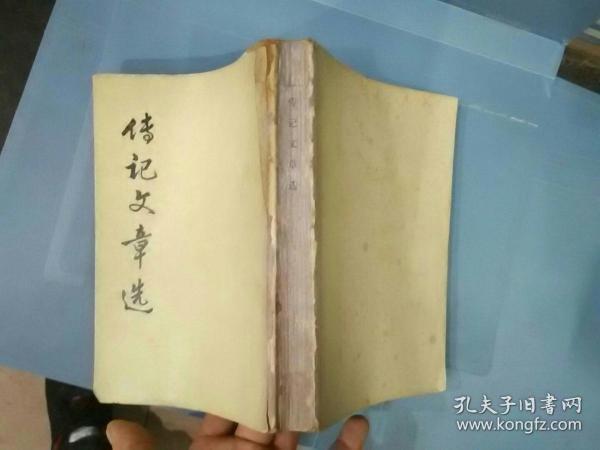 传记文章选
传记文章选
孔夫子旧书网
www.kongfz.com